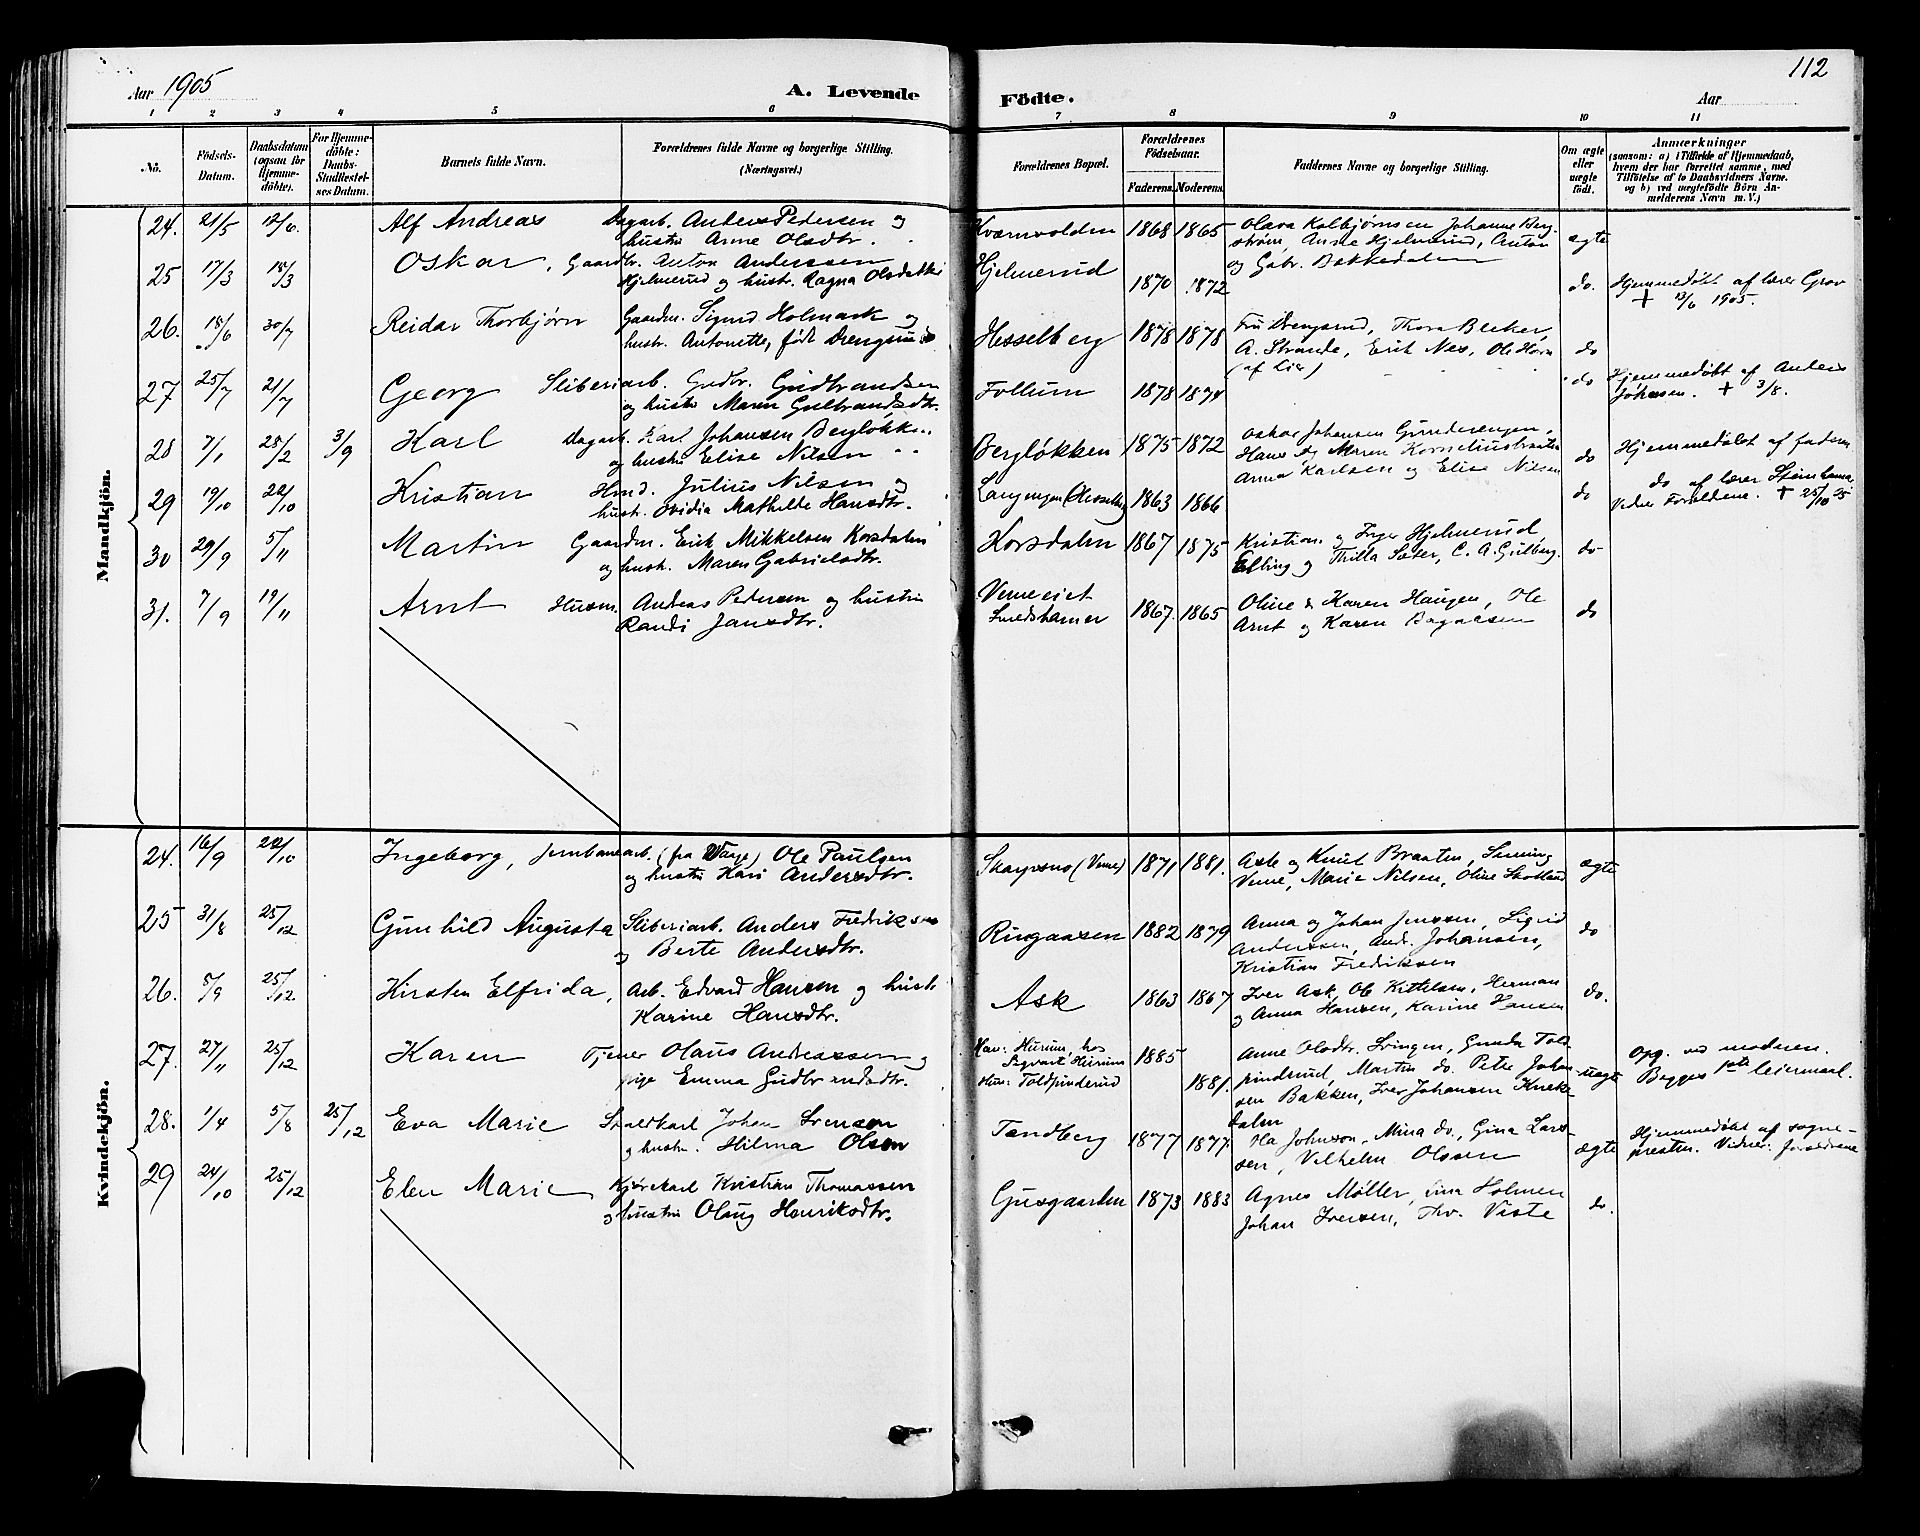 Aar 1905
A. Levende Födte.
112
Aar
1 2 3 4 5 6 7 8 9 10 11
No.
Födsels-Datum.
Daabsdatum (ogsaa for Hjemme-döbte).
For Hjemme-döbte: Daabs-Stadfæstel-ses Datum.
Barnets fulde Navn.
Forældrenes fulde Navne og borgerlige Stilling. (Næringsvei.)
Forældrenes Bopæl.
Forældrenes Födselsaar.
Faderens. Moderens.
Faddernes Navne og borgerlige Stilling.
Om ægte eller uægte født.
Anmærkninger
(saasom: a) i Tilfælde af Hjemmedaab,
hvem der har forrettet samme, med
Tilföielse af to Daabsvidners Navne.
og b) ved uægtefödte Börn An-
melderens Navn m. V.)
Mandkjön.
24. 21/5 12/6. Alf Andreas Dagarb. Anders Pedersen og
hustru Anne Olsdtr. Kværnvolden 1868 1865
Olava Kolbjørnsen Johanne Berg-
strøm, Anne Hjelmerud, Anton
og Gabr. Bakkedalen ægte
25 17/3 18/3 Oskar, Gaardbr. Anton Anderssen
Hjelmerud og hustr. Ragna Olsdatter Hjelmerud 1870 1872 do.
Hjemmedøbt af lærer Grov
+ 13/6 1905.
26. 18/6 30/7 Reidar Thorbjørn Gaardm. Sigurd Holmark og
hustr. Antonette, født Drengsrud Hesselberg 1878 1878
Fru Drengsrud, Thora Bleker,
A. Strande, Erik Nes, Ole Horn
(af Lier) do
27 25/7 21/7 Georg Sliberiarb. Gudbr. Gudbrandsen
og hustru Maren Gulbrandsdtr. Follum 1878 1874 do
Hjemmedøbt af Anders
Johansen. + 3/8.
28 7/1 25/2 3/9 Karl Dagarb. Karl Johansen Bergløkk..
og hustru Elise Nilsen Bergløkken 1875 1872
Oskar Johansen Gunderengen,
Hans og Maren Korneliusbraaten
Anna Karlsen og Elise Nilsen do
Hjemmedøbt af faderen
29 19/10 22/10 Kristian Hmd. Julius Nilsen og
hust. Ovidia Mathilde Hansdtr. 1863 1866 do
do af lærer Stenhamar
Vidner Forældrene. + 25/10 05
30 29/9 5/11 Martin Gaardm. Erik Mikkelsen Korsdalen
og hust. Maren Gabrielsdtr. Korsdalen 1867 1875
Kristian og Inger Hjelmerud
Elling og Thrilla Sæter, C. A. Gulberg. do
31. 7/9 19/11 Arnt Husm. Andreas Pedersen og hustru
Randi Jansdtr. Vemeeiet
Smedshamer 1867. 1865
Oline & Karen Haugen, Ole
Arnt og Karen Bagaasen do
Kvindekjön.
24. 16/9 22/10 Ingeborg, Jernbanearb. (fra Varge) Ole Paulsen
og hustru Kari Andersdtr. Skarpsno (Veme) 1871 1881.
Aste og Knut Braaten,
Veme, Marie Nilsen, Oline Skotland ægte
25 31/8 25/12 Gunhild Augusta Sliberiarb. Anders Fredriksen
og Berte Andersdtr. Ringaasen 1882 1879
Anna og Johan Jenssen, Sigrid
Anderssen, Andr. Johansen,
Kristian Fredriksen do
26. 5/9 25/12 Kirsten Elfrida, Arb. Edvard Hansen og hustr.
Karine Hansdtr. Ask 1863 1867
Iver Ask, Ole Kittelsen, Herman
og Anna Hansen, Karine Hansen do.
27. 27/11 25/12 Karen Tjener Olaus Andreassen og
pige Emma Gudbrandsdtr.
Han: Hurum, hos
Sigvart Hurum
Hun: Toldpinderud 1885 1881.
Anne Olsdtr. Svingen, Gunda Told-
pinderud, Martin do. Petra Johan-
sen Bakken, Iver Johansen Knek-
dalen uægte
Opg. ved moderen.
Begges 1ste leiermaal.
28. 1/4 5/8 25/12 Eva Marie Staldkarl Johan Svensen
og hustru. Hilma Olsen Tandberg 1877 1877.
Ola Johnson, Mina do., Gina Lars-
sen, Vilhelm Olssen ægte
Hjemmedøbt af sogne-
presten. Vidner: forældrene
29 24/10 25/12 Elen Marie Kjørekarl Kristian Thomassen
og hustru Olaug Henriksdtr. Gusgaarden 1873 1883
Agnes Møller, Lina Holmen
Johan Iversen, Thv. Viste do.